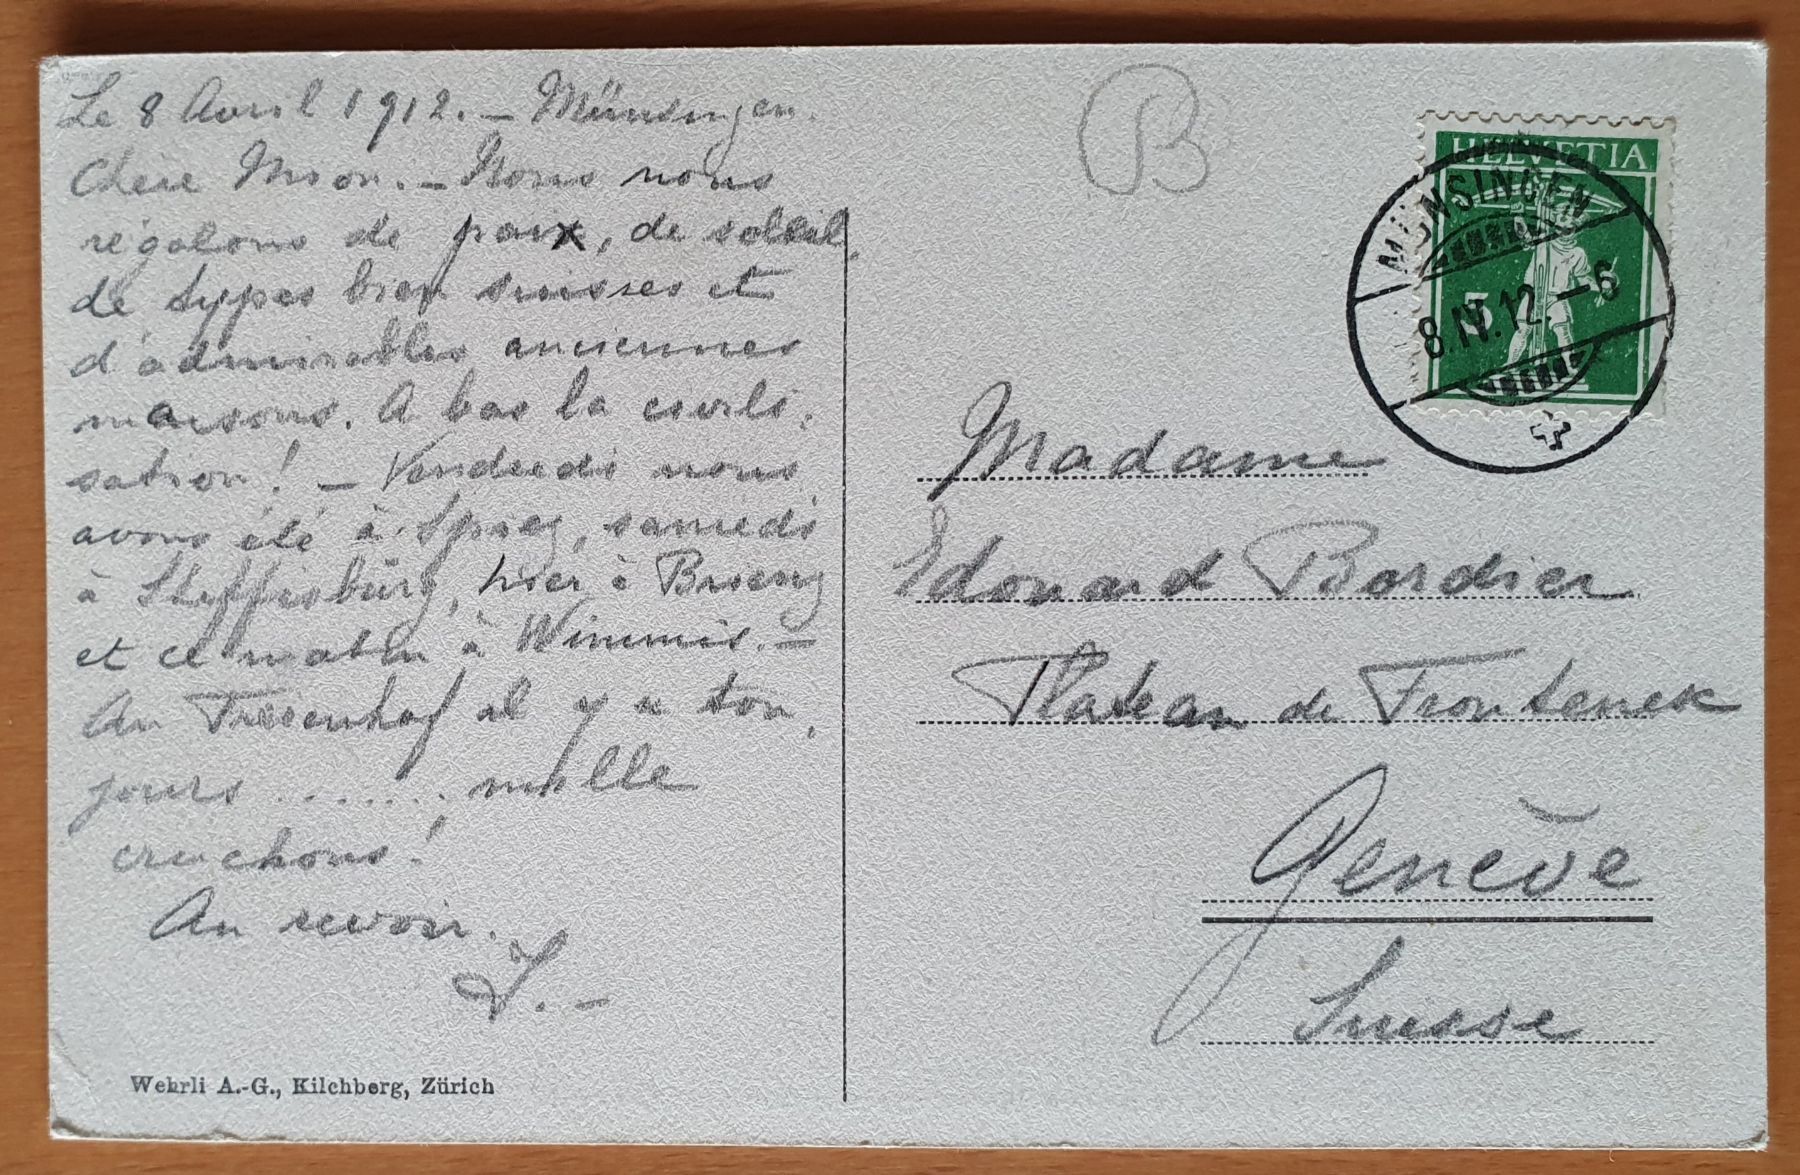 Le 8 Avril 1912. — Münsingen.
Chère Mion. — Nous nous
régalons de paix, de soleil,
de types bien suisses et
d'admirables anciennes
maisons. A bas la civili-
sation! — Vendredi nous
avons été à Spiez, samedi
à Steffisbürg, hier à Brienz
et ce matin à Wimmis. —
Au Freienhof il y a tou-
jours ....... mille
cruchons!
Au revoir.
Wehrli A.-G., Kilchberg, Zürich
B
HELVETIA
5
MÜNSINGEN
8.IV.12.–6
Madame
Edouard Bordier
Plateau de Frontenex
Genève
Suisse